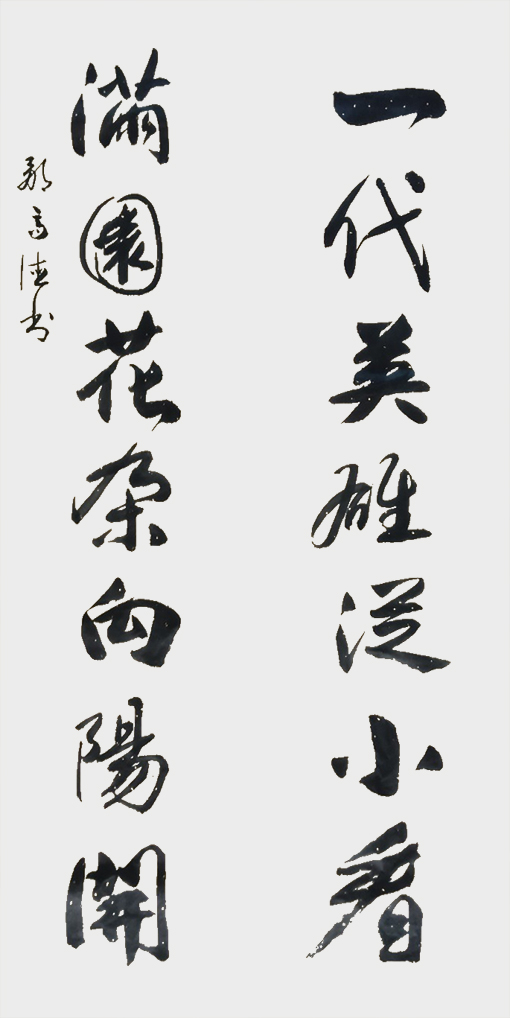 一代英雄從小看
滿園花朵向陽開
高德书